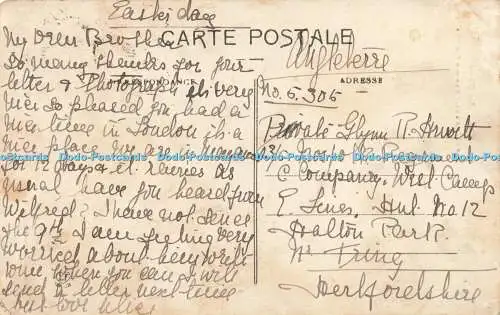 Easki day
CARTE POSTALE
CORRESPONDANCE
ADRESSE
My Dear Brother
So many thanks for your
letter & Photograph it is very
nice so pleased you had a
nice time in London it is a
nice place We are in
for 12 days & it
usual have you heard from
Wilfred? I have not since
the 9th I am feeling very
worried about him
when you can I will
send a letter next time
best love
Angleterre
No. 6.305
Private Glynn R.
C Company, West Camp
E Lines, Hut No 12
Halton Park
Nr Tring
Hertfordshire
Dodo-Postcards Dodo-Postcards Dodo-Postcards Dodo-Postcards Dodo-Postcards